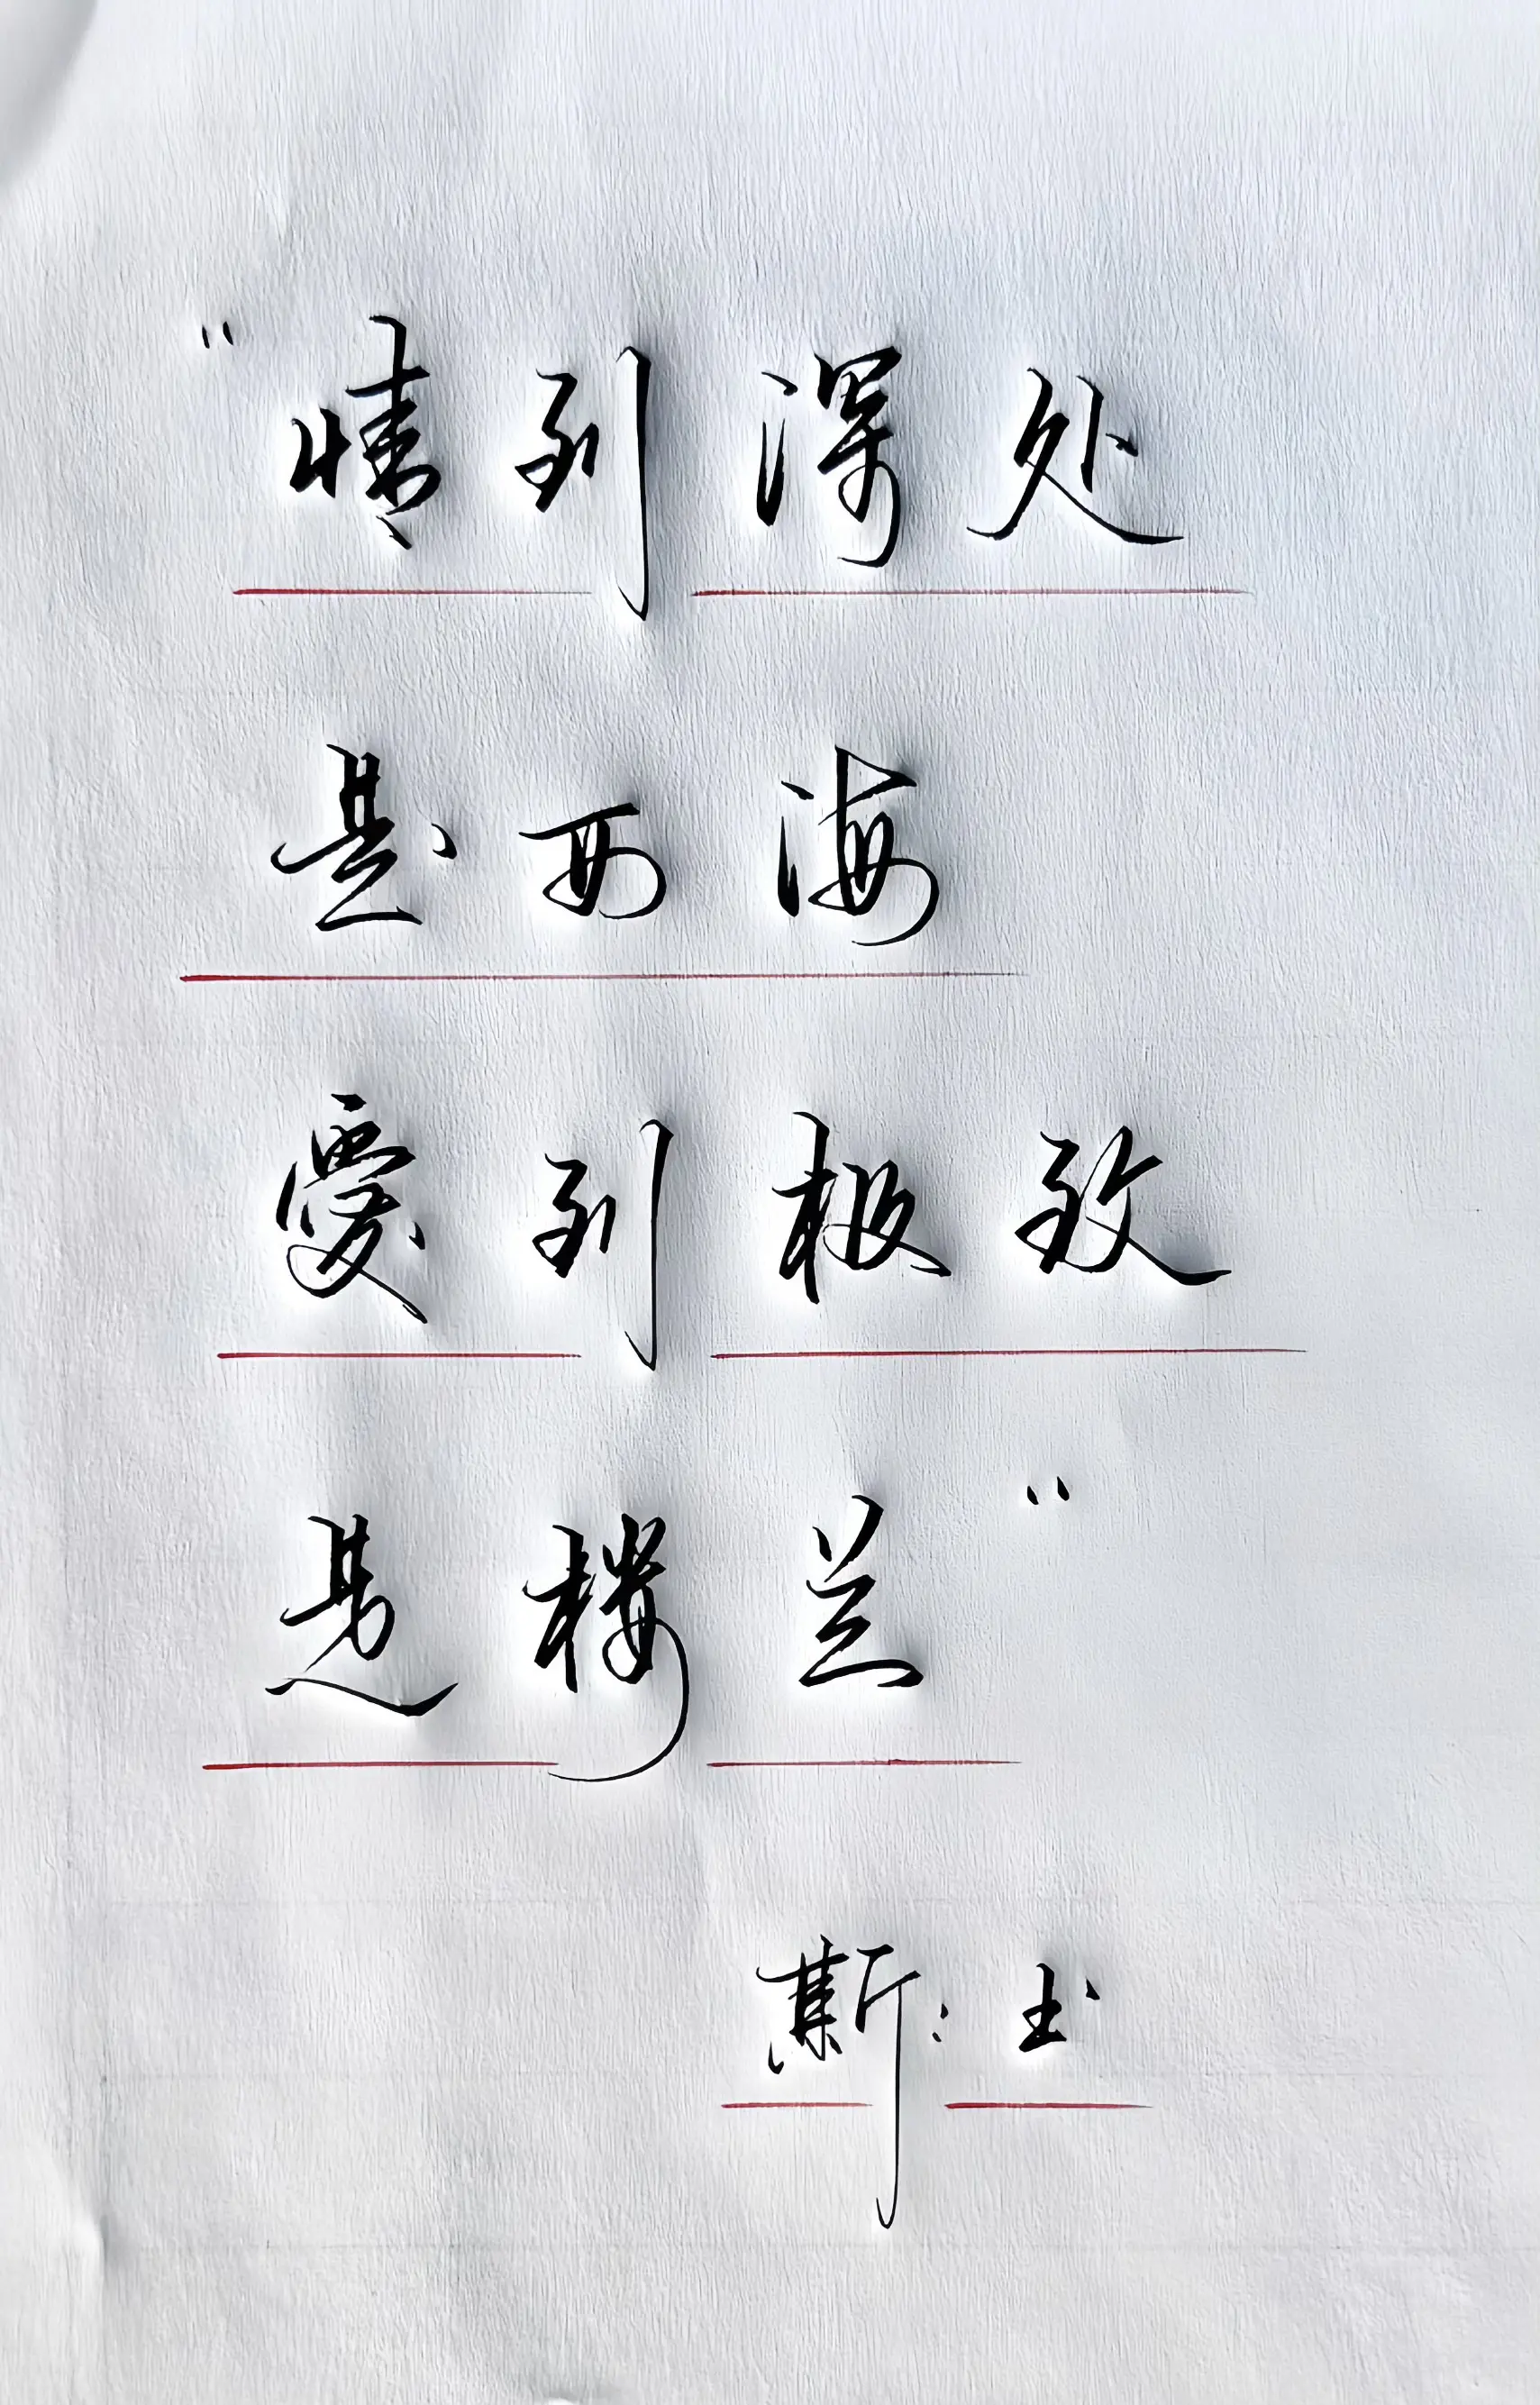 “情到深处
是西海
爱到极致
是楼兰”
斯：书